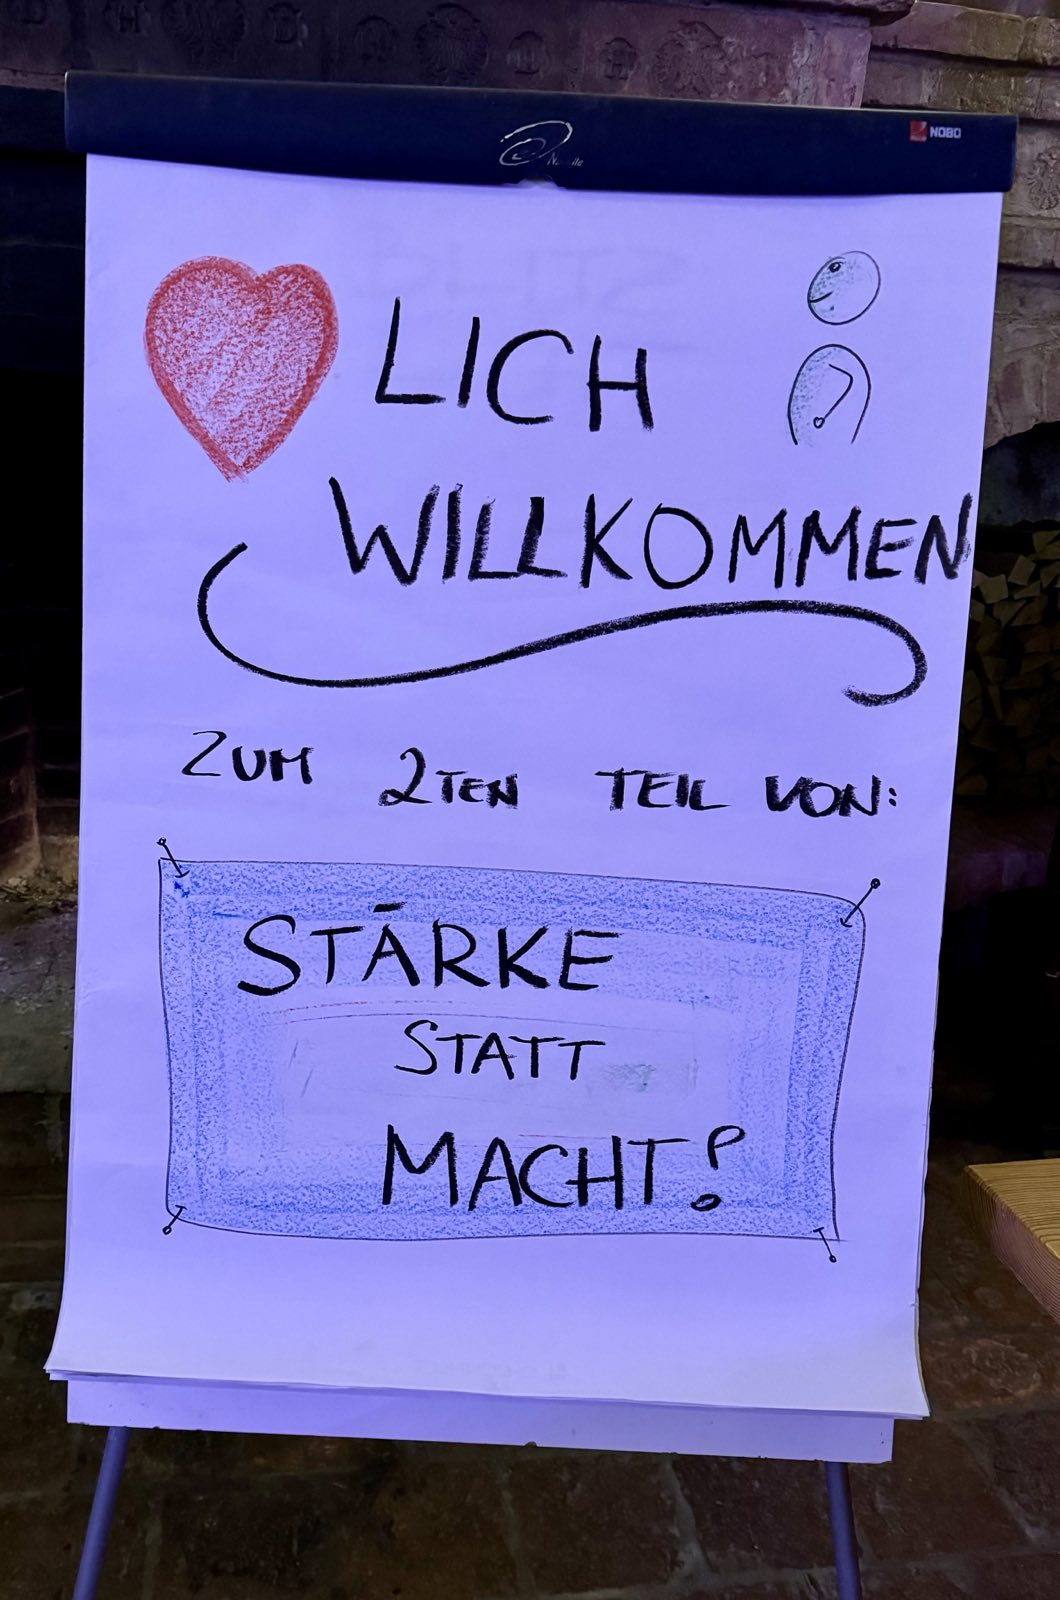 NOBO
LICH
WILLKOMMEN
ZUM 2TEN TEIL VON:
STÄRKE
STATT
MACHT?